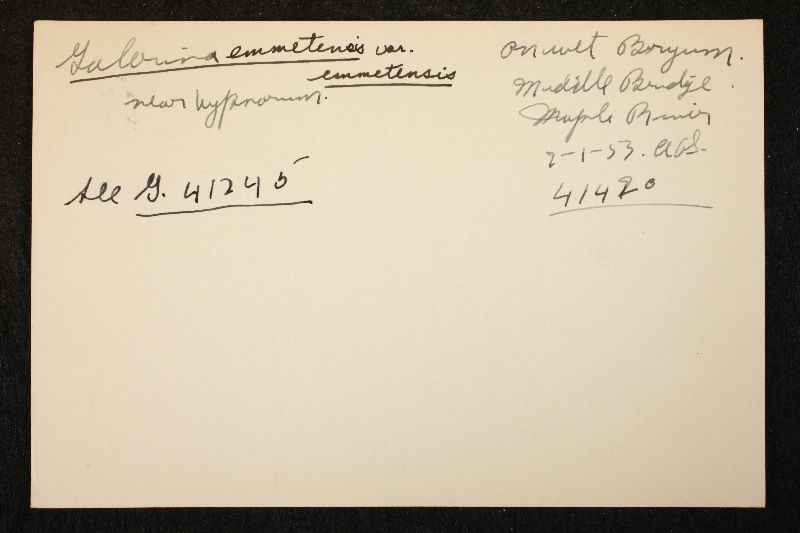 Galerina emmetensis var.
emmetensis
near hypnorum.
See G. 41245
on wet Bryum.
Middle Bridge.
Maple River
7-1-53. AHS.
41420